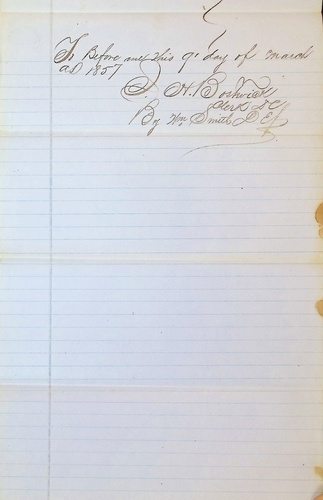 Before me this 9 day of march
AD 1857
H. Bostwick
Clerk D C
By Wm Smith D